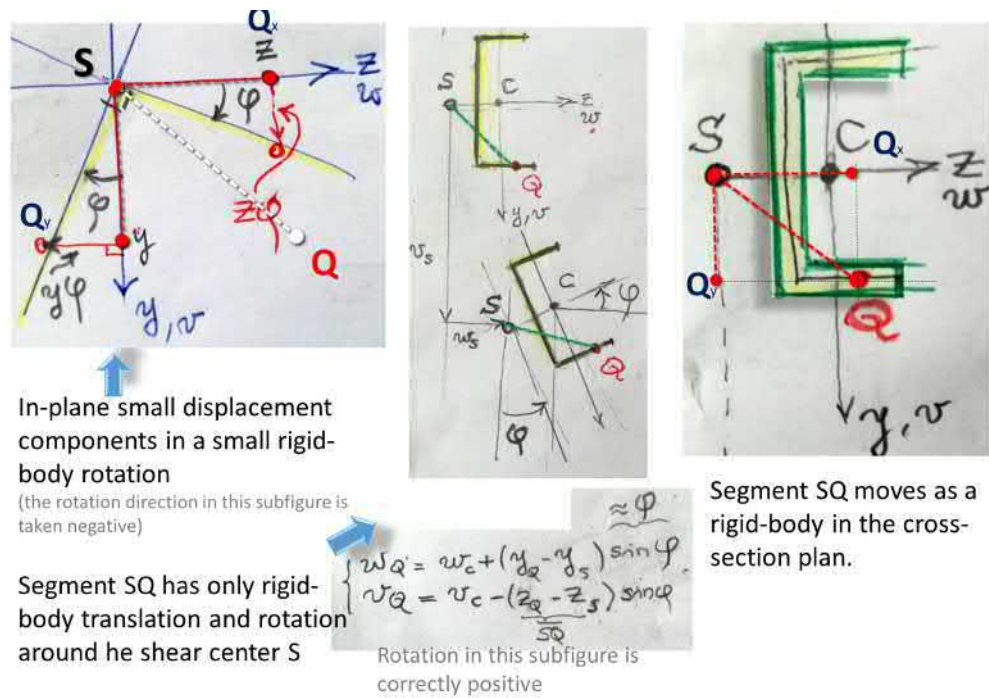 Qx
S
Z
Z
w
φ
φ
Qy
y
yφ
zφ
Q
y, v
S
C
z
w
Q
y, v
vs
S
C
φ
ws
Q
φ
S
C
Qx
Z
w
Qy
Q
y, v
In-plane small displacement
components in a small rigid-
body rotation
(the rotation direction in this subfigure is
taken negative)
Segment SQ has only rigid-
body translation and rotation
around he shear center S
≈ φ
wQ = wc + (yQ - ys) sinφ.
vQ = vc - (zQ - zs) sinφ
SQ
Rotation in this subfigure is
correctly positive
Segment SQ moves as a
rigid-body in the cross-
section plan.